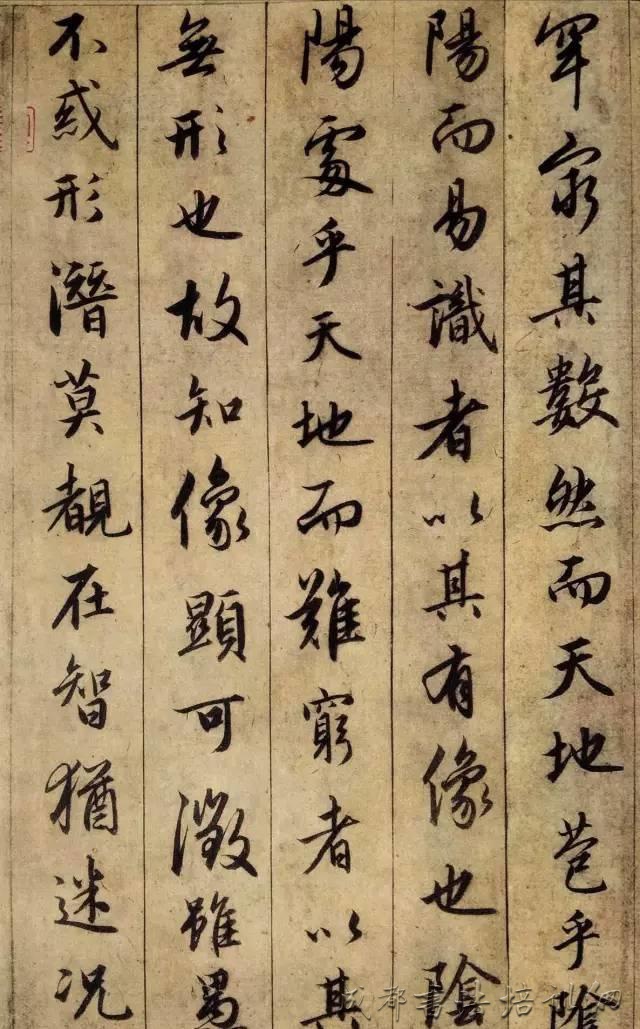 罕窮其數然而天地苞乎陰
陽而易識者以其有像也陰
陽處乎天地而難窮者以其
無形也故知像顯可徵雖愚
不惑形潛莫覩在智猶迷况
成都書具培训网